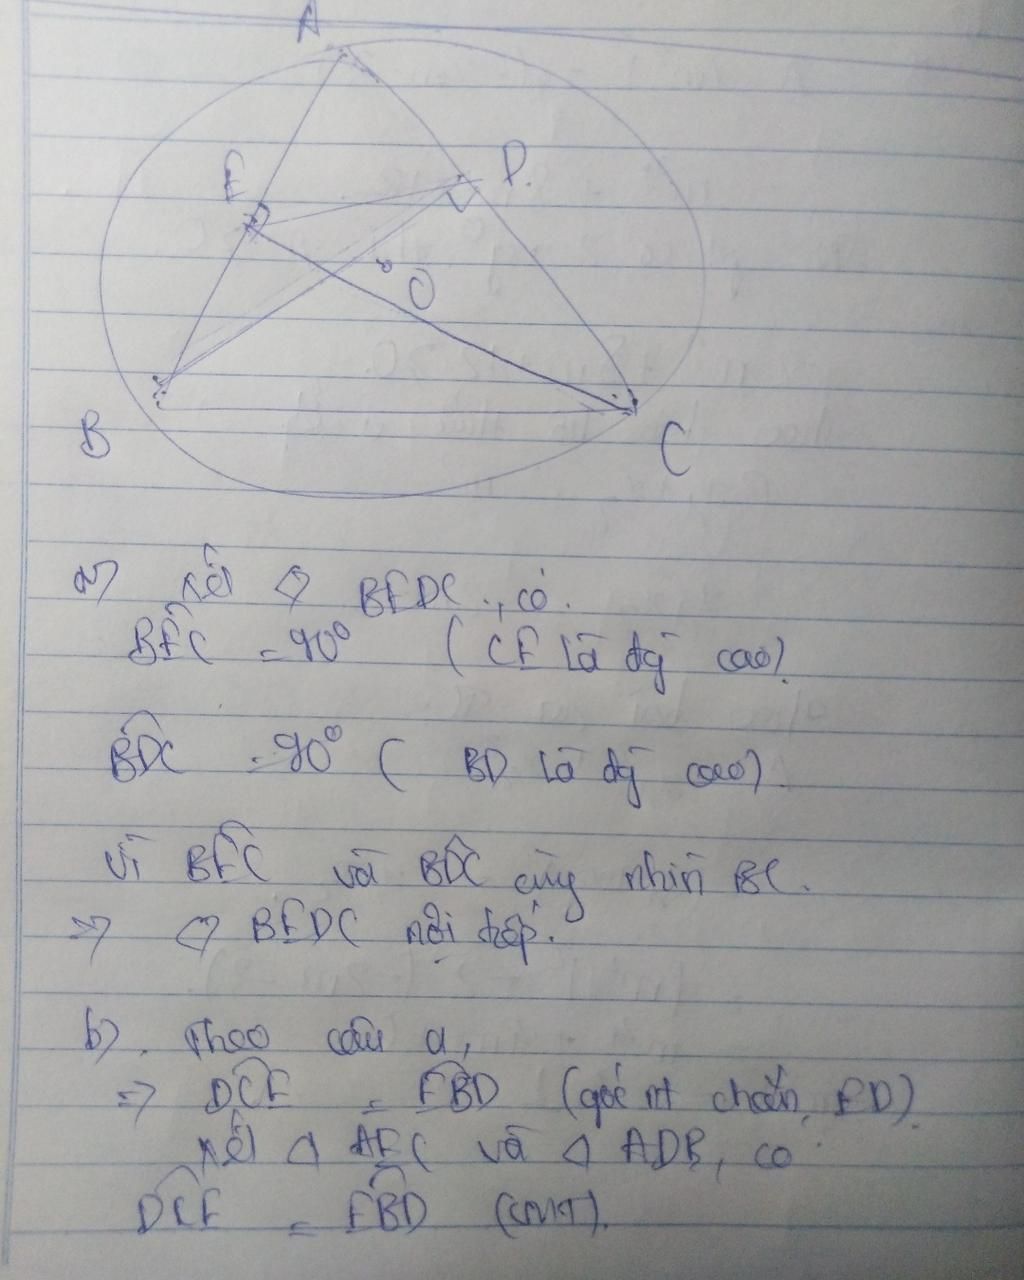 A
E
D.
O
B
C
a) xét ◇ BEDC, có.
BÊC = 90° ( CE là đg cao).
BDC = 90° ( BD là đg cao).
Vì BEC và BDC cùng nhìn BC.
=> ◇ BEDC nội tiếp.
b). Theo câu a,
=> DCE = EBD (góc nt chắn ED)
xét △ AEC và △ ADB, có
DCE = EBD (CMT).